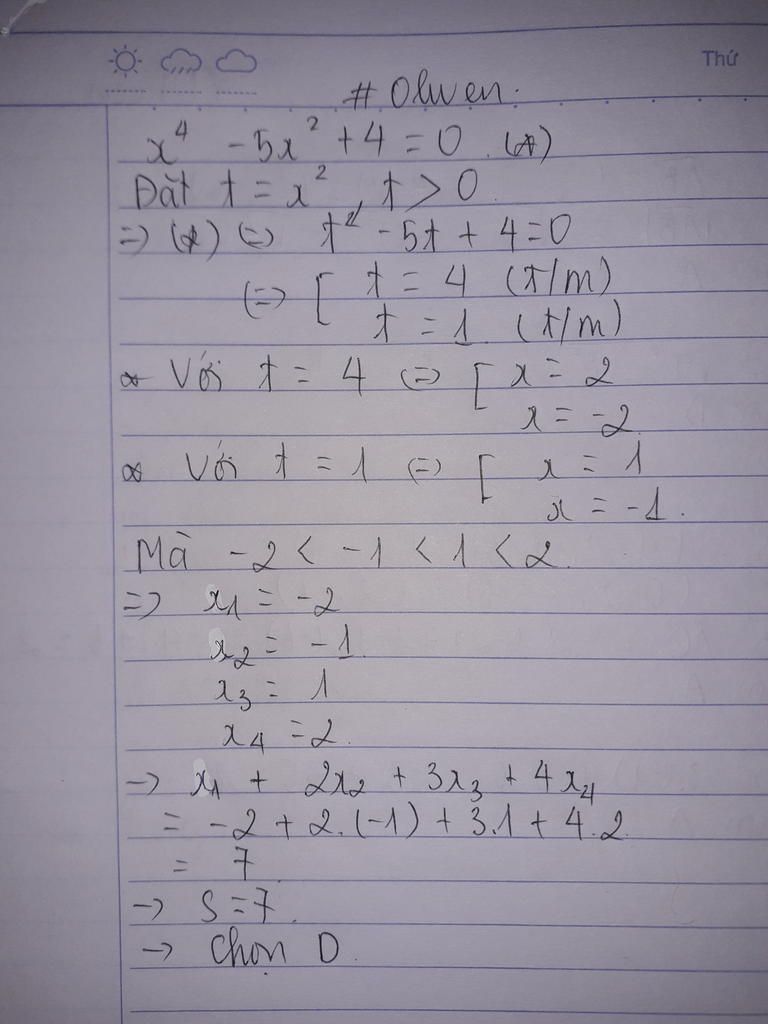 Thứ
# Olwen.
x⁴ - 5x² + 4 = 0. (*)
Đặt t = x², t > 0
=> (*) (=) t² - 5t + 4 = 0
(=) [ t = 4 (t/m)
t = 1 (t/m)
* Với t = 4 (=) [ x = 2
x = -2
* Với t = 1 (=) [ x = 1
x = -1.
Mà -2 < -1 < 1 < 2
=> x₁ = -2
x₂ = -1
x₃ = 1
x₄ = 2.
-> x₁ + 2x₂ + 3x₃ + 4x₄
= -2 + 2.(-1) + 3.1 + 4.2
= 7
-> S = 7.
-> Chọn D